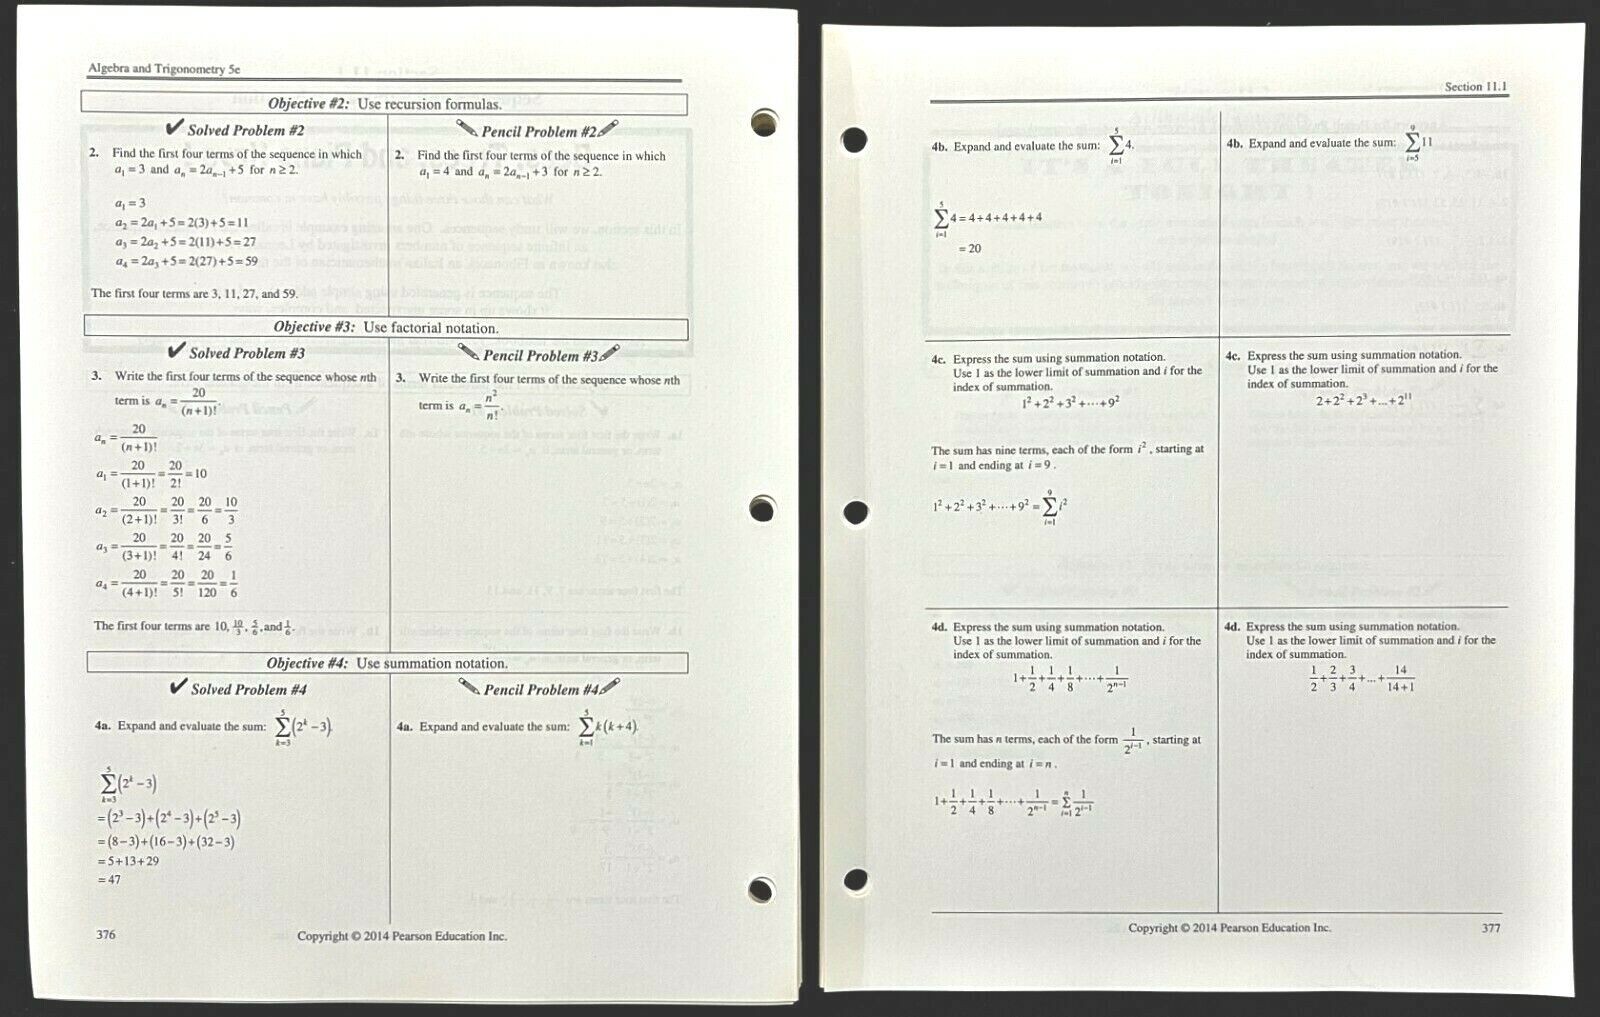 Algebra and Trigonometry 5e
Objective #2: Use recursion formulas.
✔ Solved Problem #2
2. Find the first four terms of the sequence in which
a₁ = 3 and aₙ = 2aₙ₋₁ + 5 for n ≥ 2.
a₁ = 3
a₂ = 2a₁ + 5 = 2(3) + 5 = 11
a₃ = 2a₂ + 5 = 2(11) + 5 = 27
a₄ = 2a₃ + 5 = 2(27) + 5 = 59
The first four terms are 3, 11, 27, and 59.
Pencil Problem #2
2. Find the first four terms of the sequence in which
a₁ = 4 and aₙ = 2aₙ₋₁ + 3 for n ≥ 2.
Objective #3: Use factorial notation.
✔ Solved Problem #3
3. Write the first four terms of the sequence whose nth
term is aₙ = 20/(n+1)!.
aₙ = 20/(n+1)!
a₁ = 20/(1+1)! = 20/2! = 10
a₂ = 20/(2+1)! = 20/3! = 20/6 = 10/3
a₃ = 20/(3+1)! = 20/4! = 20/24 = 5/6
a₄ = 20/(4+1)! = 20/5! = 20/120 = 1/6
The first four terms are 10, 10/3, 5/6, and 1/6.
Pencil Problem #3
3. Write the first four terms of the sequence whose nth
term is aₙ = n²/n!.
Objective #4: Use summation notation.
✔ Solved Problem #4
4a. Expand and evaluate the sum: ∑_{k=3}^{5} (2ᵏ − 3).
∑_{k=3}^{5} (2ᵏ − 3)
= (2³ − 3) + (2⁴ − 3) + (2⁵ − 3)
= (8 − 3) + (16 − 3) + (32 − 3)
= 5 + 13 + 29
= 47
Pencil Problem #4
4a. Expand and evaluate the sum: ∑_{k=1}^{5} k(k + 4).
376
Copyright © 2014 Pearson Education Inc.
Section 11.1
4b. Expand and evaluate the sum: ∑_{i=1}^{5} 4.
∑_{i=1}^{5} 4 = 4 + 4 + 4 + 4 + 4
= 20
4b. Expand and evaluate the sum: ∑_{i=5}^{9} 11
4c. Express the sum using summation notation.
Use 1 as the lower limit of summation and i for the
index of summation.
1² + 2² + 3² + ⋯ + 9²
The sum has nine terms, each of the form i², starting at
i = 1 and ending at i = 9.
1² + 2² + 3² + ⋯ + 9² = ∑_{i=1}^{9} i²
4c. Express the sum using summation notation.
Use 1 as the lower limit of summation and i for the
index of summation.
2 + 2² + 2³ + ... + 2¹¹
4d. Express the sum using summation notation.
Use 1 as the lower limit of summation and i for the
index of summation.
1 + 1/2 + 1/4 + 1/8 + ⋯ + 1/2ⁿ⁻¹
The sum has n terms, each of the form 1/2ⁱ⁻¹, starting at
i = 1 and ending at i = n.
1 + 1/2 + 1/4 + 1/8 + ⋯ + 1/2ⁿ⁻¹ = ∑_{i=1}^{n} 1/2ⁱ⁻¹
4d. Express the sum using summation notation.
Use 1 as the lower limit of summation and i for the
index of summation.
1/2 + 2/3 + 3/4 + ... + 14/(14+1)
Copyright © 2014 Pearson Education Inc.
377